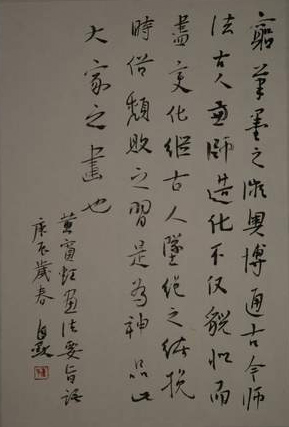 窮筆墨之微奧博通古今師
法古人兼師造化不僅貌似而
盡變化繼古人墜絕之緒挽
時俗頹敗之習是為神品此
大家之畫也
黃賓虹畫法要旨語
庚辰歲春自默